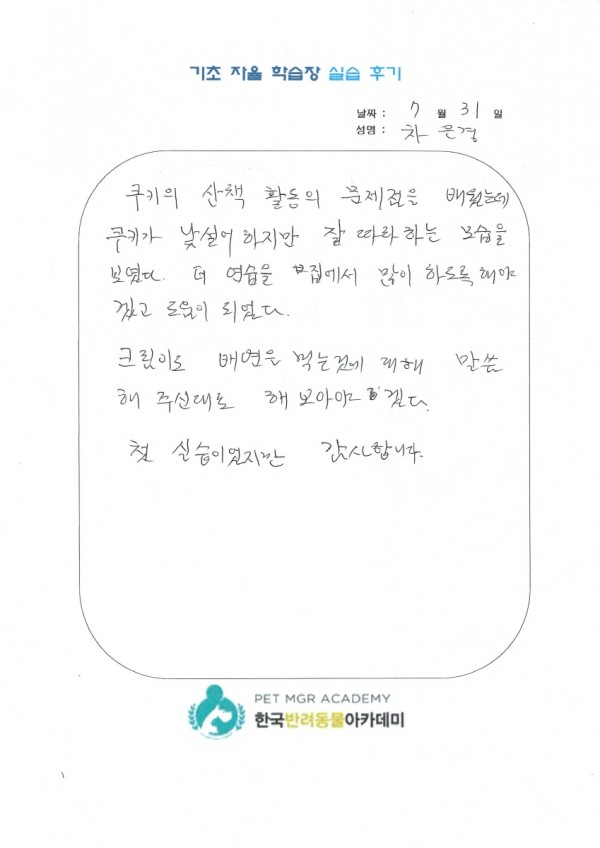 기초 자율 학습장 실습 후기
날짜 : 7 월 31 일
성명 : 차 은경
쿠키의 산책 활동의 문제점을 배웠는데
쿠키가 낯설어 하지만 잘 따라하는 모습을
보였다. 더 연습을 집에서 많이 하도록 해야
겠고 도움이 되었다.
크림이도 배변을 먹는것에 대해 말씀
해 주신대로 해 보아야 겠다.
첫 실습이었지만 감사합니다.
PET MGR ACADEMY
한국반려동물아카데미